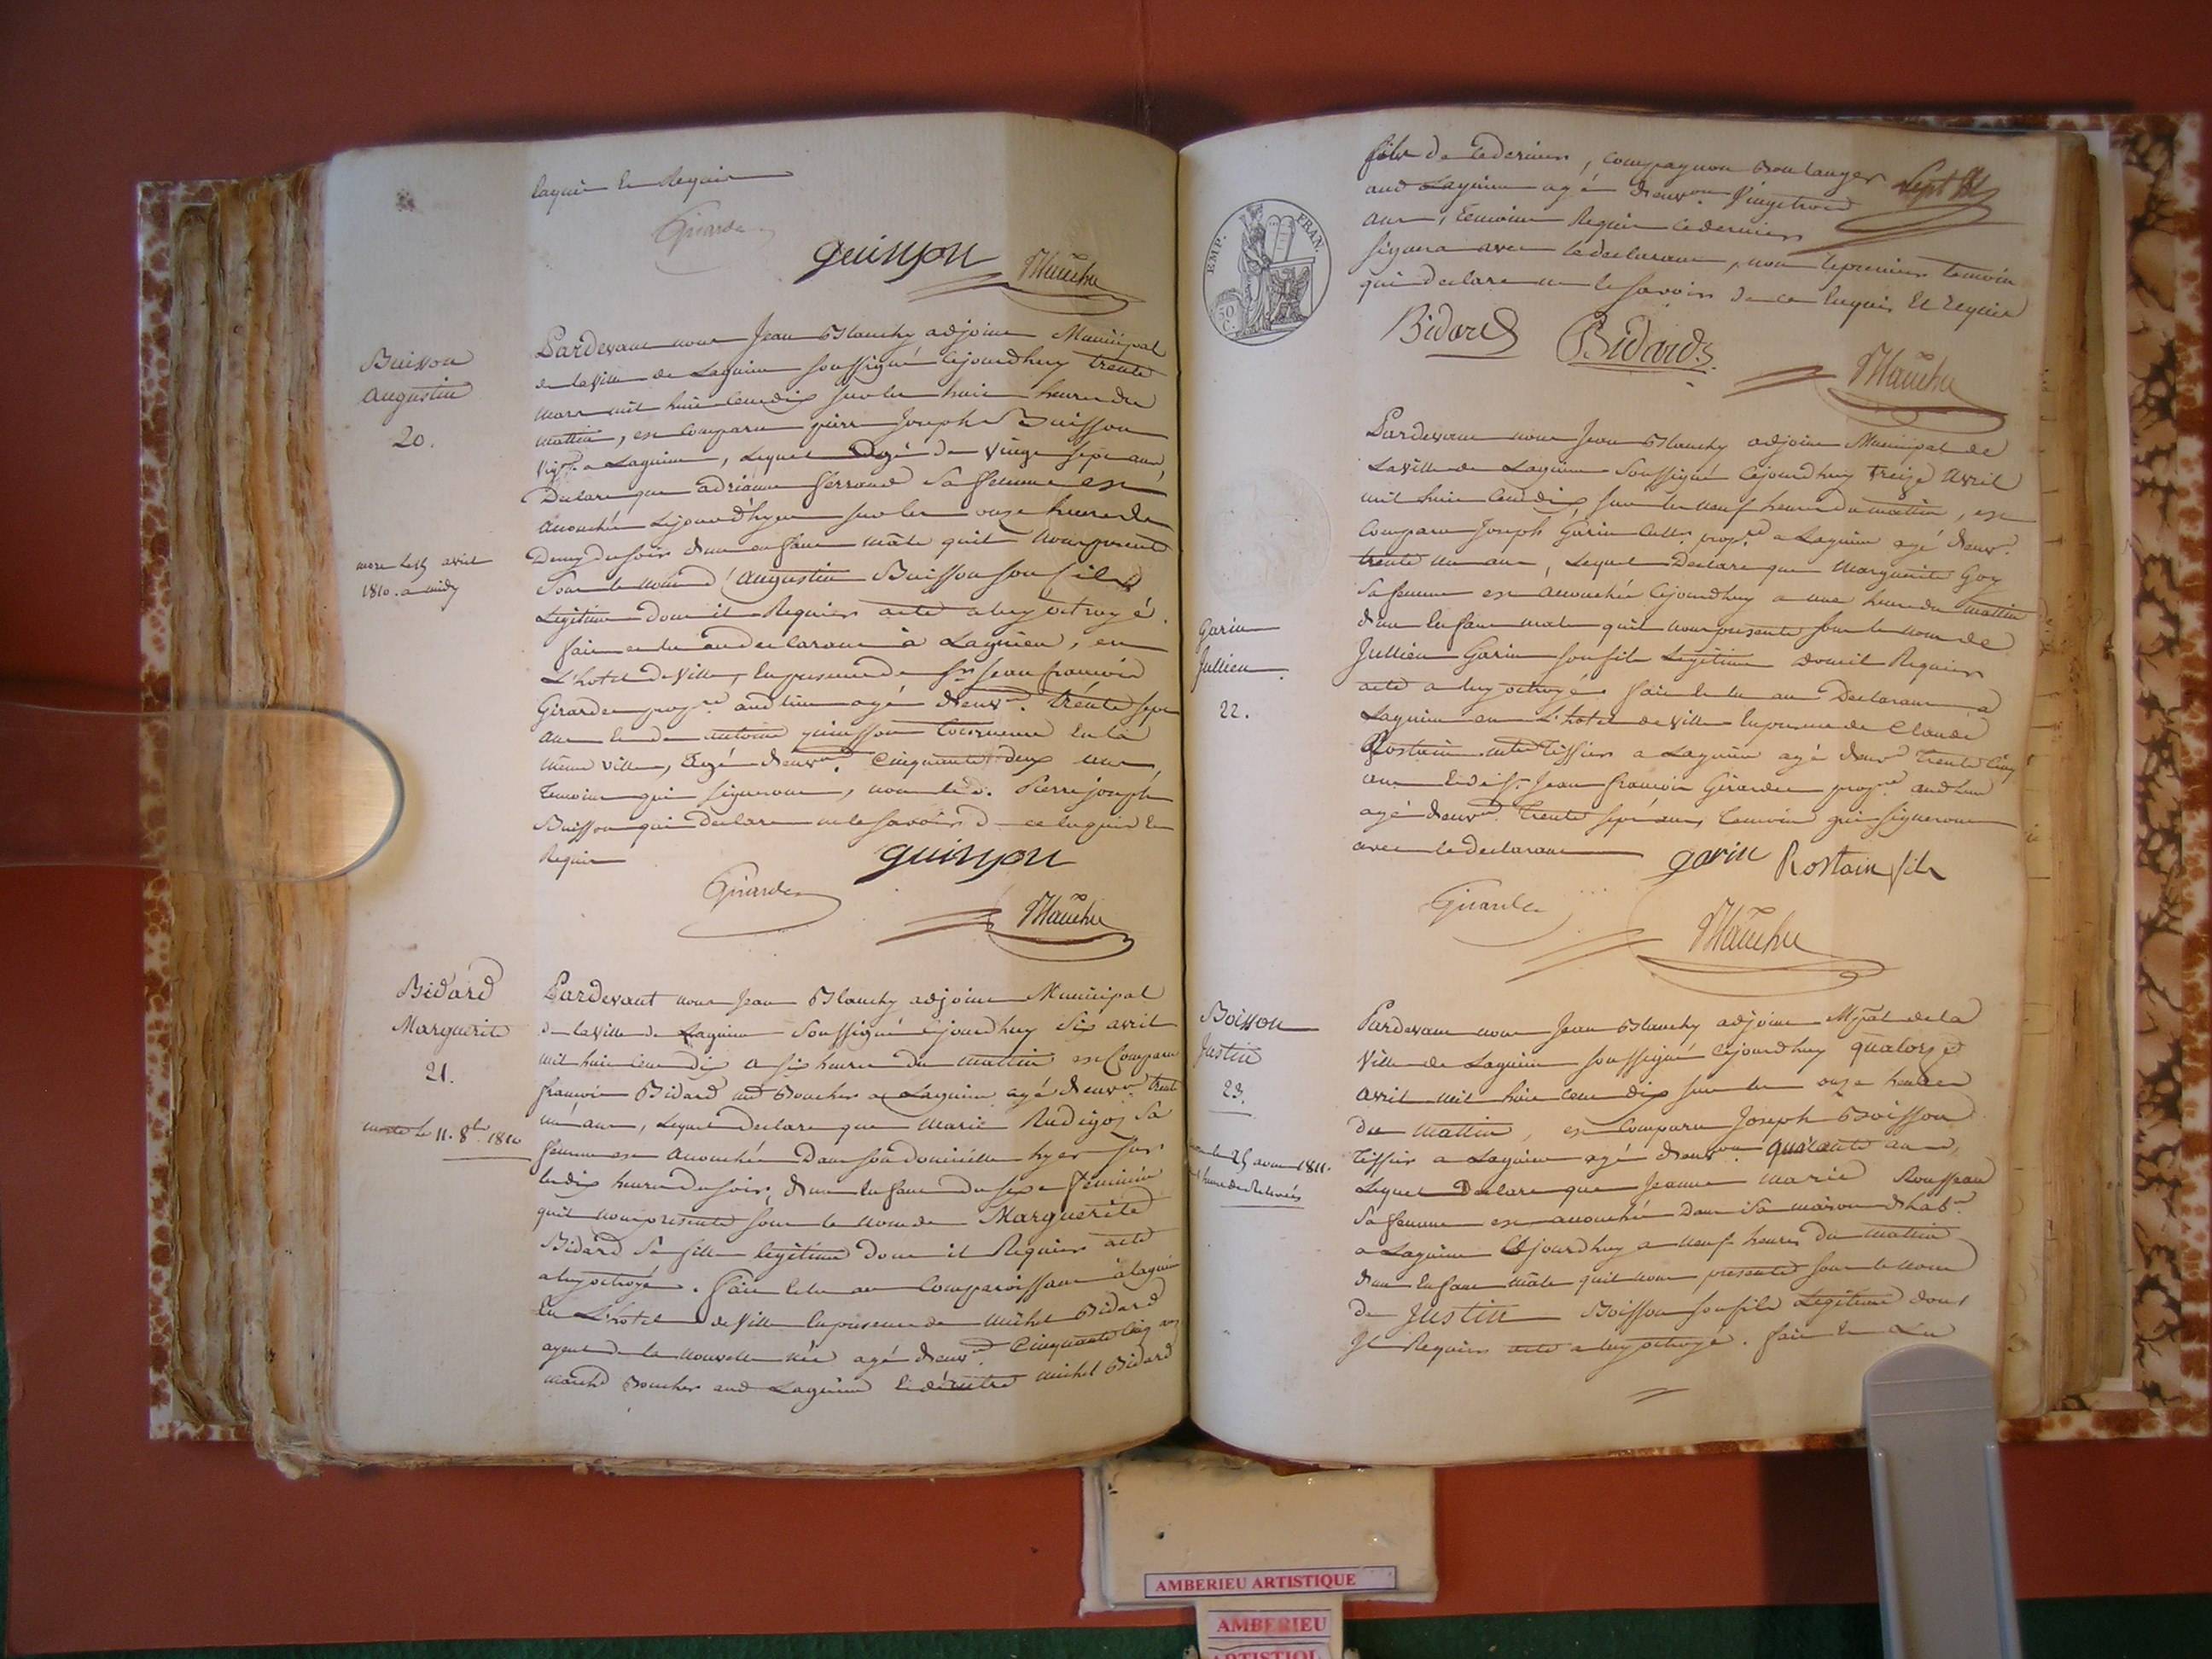 Enquis et Requis
Girarde
quinson
Blanchy
Buisson
Augustin
20.
Pardevant nous Jean Blanchy adjoint Municipal
de la ville de Lagnieu soussigné cejourdhuy trente
mars mil huit cent dix sur les huit heures du
mattin, est comparu pierre Joseph Buisson
a Lagnieu, Lequel agé de vingt sept ans
Declare que adrianne ferrand Sa femme est
accouchée sur les onze heures de
Demy du soir d'un enfant mâle qu'il nous presente
Sous le nom d'Augustin Buisson son fils
Legitime dont il Requiert acte a luy octroyé.
fait et lu au declarant à Lagnieu, en
L'hotel de ville, en presence de Sr. Jean françois
Girarde propre. aud lieu agé d'env.on trente sept
ans et de antoine quinson en la
même ville, Agé d'env.on Cinquante deux ans,
temoins qui signeront, non led. Pierre joseph
Buisson qui declare ne le savoir de ce enquis et
Requis
mort le 15 avril
1810. a midy
quinson
Girarde
Blanchy
Bidard
Marguerite
21.
morte le 11. 8bre 1810
Pardevant nous Jean Blanchy adjoint Municipal
de la ville de Lagnieu Soussigné cejourdhuy Six avril
mil huit cent dix a six heures du mattin est Comparu
françois Bidard md Boucher a Lagnieu agé d'env.on trente
un ans, Lequel declare que Marie Rudigoz Sa
femme est accouchée Dans son domicille hyer sur
les dix heures du soir, d'un Enfant du sexe feminin
qu'il nous presente sous le nom de Marguerite
Bidard Sa fille legitime dont il Requiert acte
a luy octroyé. fait et lu au Comparoissant à Lagnieu
En L'hotel de Ville En presence de Michel Bidard
ayeul de la nouvelle née agé d'env.on Cinquante cinq ans
march.d Boucher aud Lagnieu et d'autre michel Bidard
fils de ce dernier, compagnon Boulanger
aud Lagnieu agé d'env.on Vingt trois
ans, temoins Requis ce dernier
signera avec le declarant, non le premier temoin
qui declare ne le savoir de ce Enquis Et Requis
Sept
EMP. FRAN.
50 C.
Bidard
Bidard
Blanchy
Garin
Jullien
22.
Pardevant nous Jean Blanchy adjoint Municipal de
La Ville de Lagnieu Soussigné Cejourdhuy treize Avril
mil huit cent dix, sur les neuf heures du mattin, est
Comparu Joseph Garin propre. a Lagnieu agé d'env.on
trente un ans, Lequel Declare que Marguerite Goy
Sa femme est accouchée Cejourdhuy a une heure du mattin
d'un Enfant mâle qu'il nous presente sous le nom de
Jullien Garin son fils Legitime dont il Requiert
acte a luy octroyé. fait et lu au Declarant a
Lagnieu en L'hotel de ville En presence de Claude
Rostain Tissier a Lagnieu agé d'env.on trente cinq
ans et de Sr. Jean françois Girarde propre. aud lieu
agé d'env.on trente sept ans, temoins qui signeront
avec le declarant
garin
Rostain fils
Girarde
Blanchy
Boisson
Justin
23.
mort le 25 1811.
Pardevant nous Jean Blanchy adjoint Mpal de la
Ville de Lagnieu soussigné Cejourdhuy quatorze
avril mil huit cent dix sur les onze heures
du mattin, est comparu Joseph Boisson
Tissier a Lagnieu agé d'env.on quarante ans,
Lequel Declare que Jeanne marie Rousseau
Sa femme est accouchée Dans Sa maison d'hab.on
a Lagnieu Cejourdhuy a neuf heures du mattin
d'un Enfant mâle qu'il nous presente sous le nom
de Justin Boisson son fils Legitime dont
Il Requiert acte a luy octroyé. fait et Lu
AMBERIEU ARTISTIQUE
AMBERIEU
ARTISTIQU